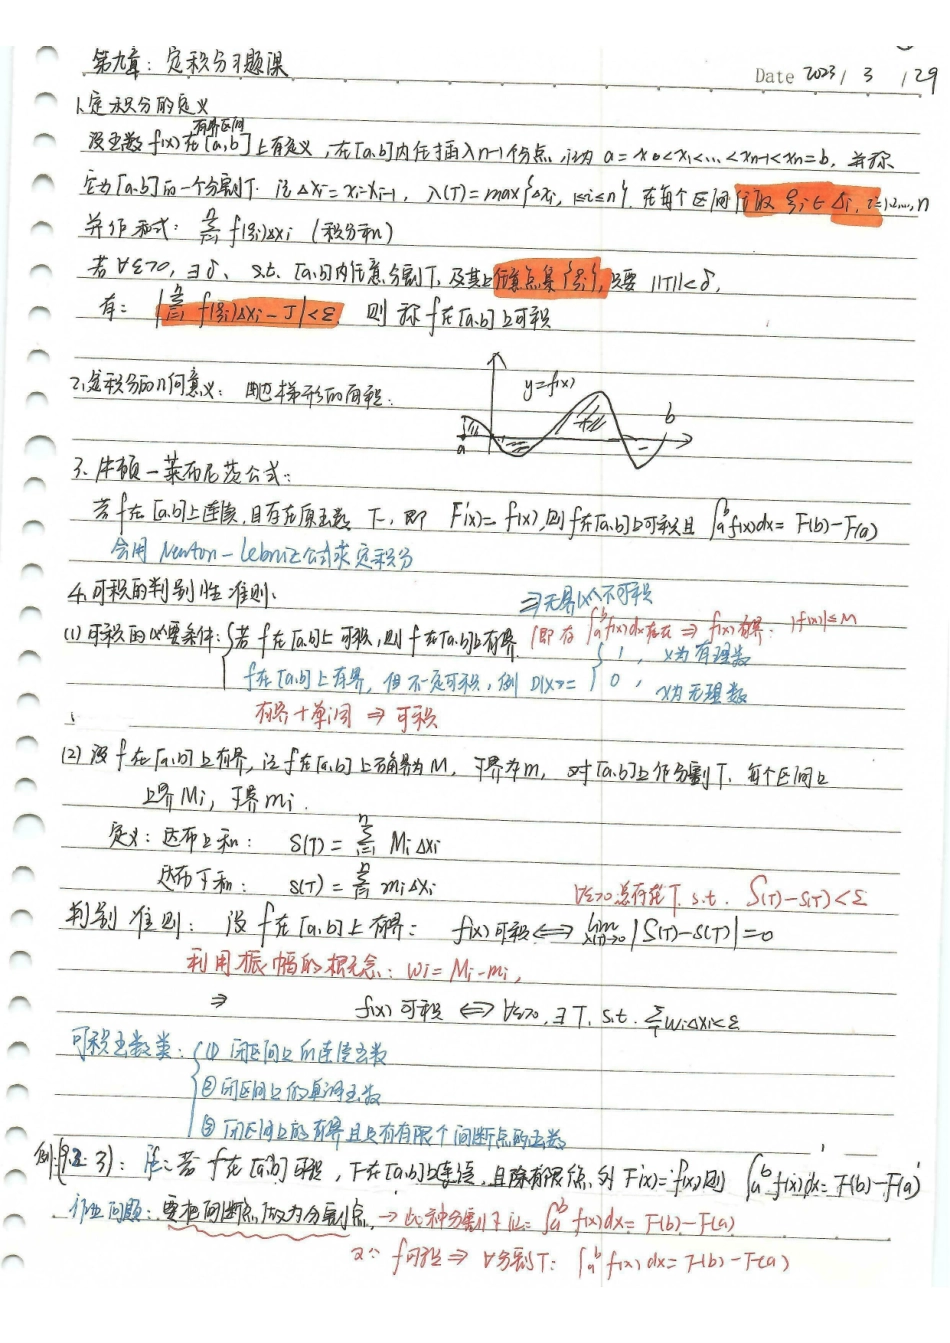 第九章：定积分习题课
Date 2023 / 3 / 29
1、定积分的定义
有界区间
设函数 f(x) 在 [a,b] 上有定义，在[a,b]内任插入n-1个分点，记为 a = x0<x1<...<xn-1<xn=b，并称
它为[a,b]的一个分割T. 记 Δxi = xi-xi-1， λ(T) = max{Δxi, 1≤i≤n}. 在每个区间任取 ξi∈Δi, i=1,2,...,n
并作和式：∑ⁿᵢ₌₁ f(ξi)Δxi （积分和）
若∀ε>0, ∃δ、 s.t. [a,b]内任意分割T，及其上任意点集{ξi}, 只要 ||T||<δ,
有： |∑ⁿᵢ₌₁ f(ξi)Δxi - J|<ε 则称f在[a,b]上可积
2、定积分的几何意义： 曲边梯形的面积.
y=f(x)
a
b
3、牛顿-莱布尼茨公式：
若f在[a,b]上连续,且存在原函数 F，即 F'(x)= f(x),则f在[a,b]上可积且 ∫ₐᵇ f(x)dx = F(b)-F(a)
会用 Newton-Lebniz公式求定积分
4、可积的判别性准则、
⇒无界必不可积
(1) 可积的必要条件：{若 f在[a,b]上可积,则 f在[a,b]上有界. (即若 ∫ₐᵇ f(x)dx存在 ⇒ f(x)有界： |f(x)|≤M
f在[a,b]上有界，但不一定可积，例 D(x)= { 1 , x为有理数
0 , x为无理数
有界+单调 ⇒ 可积
(2) 设f在[a,b]上有界, 记f在[a,b]上上确界为M, 下界为m, 对[a,b]上作分割T, 每个区间上
上界Mi, 下界mi.
定义：达布上和： S(T) = ∑ⁿᵢ₌₁ Mi Δxi
达布下和： s(T) = ∑ⁿᵢ₌₁ mi Δxi
∀ε>0 总存在T, s.t. S(T)-s(T)<ε
判别准则： 设f在[a,b]上有界： f(x)可积 ⟺ lim λ(T)→0 |S(T)-s(T)|=0
利用振幅的概念：wi = Mi-mi,
⇒ f(x)可积 ⟺ ∀ε>0, ∃T, s.t. ∑_T wiΔxi<ε
可积函数类：{① 闭区间上的连续函数
② 闭区间上的单调函数
③ 闭区间上的有界且只有有限个间断点的函数
例(9.2 3)：证：若 f在[a,b]可积，F在[a,b]上连续，且除有限点，外 F'(x)=f(x),则 ∫ₐᵇ f(x)dx = F(b)-F(a)
作业问题：要把间断点做为分割点, → 此种分割下证= ∫ₐᵇ f(x)dx = F(b)-F(a)
又∵ f可积 ⇒ ∀分割T： ∫ₐᵇ f(x)dx = F(b)-F(a)